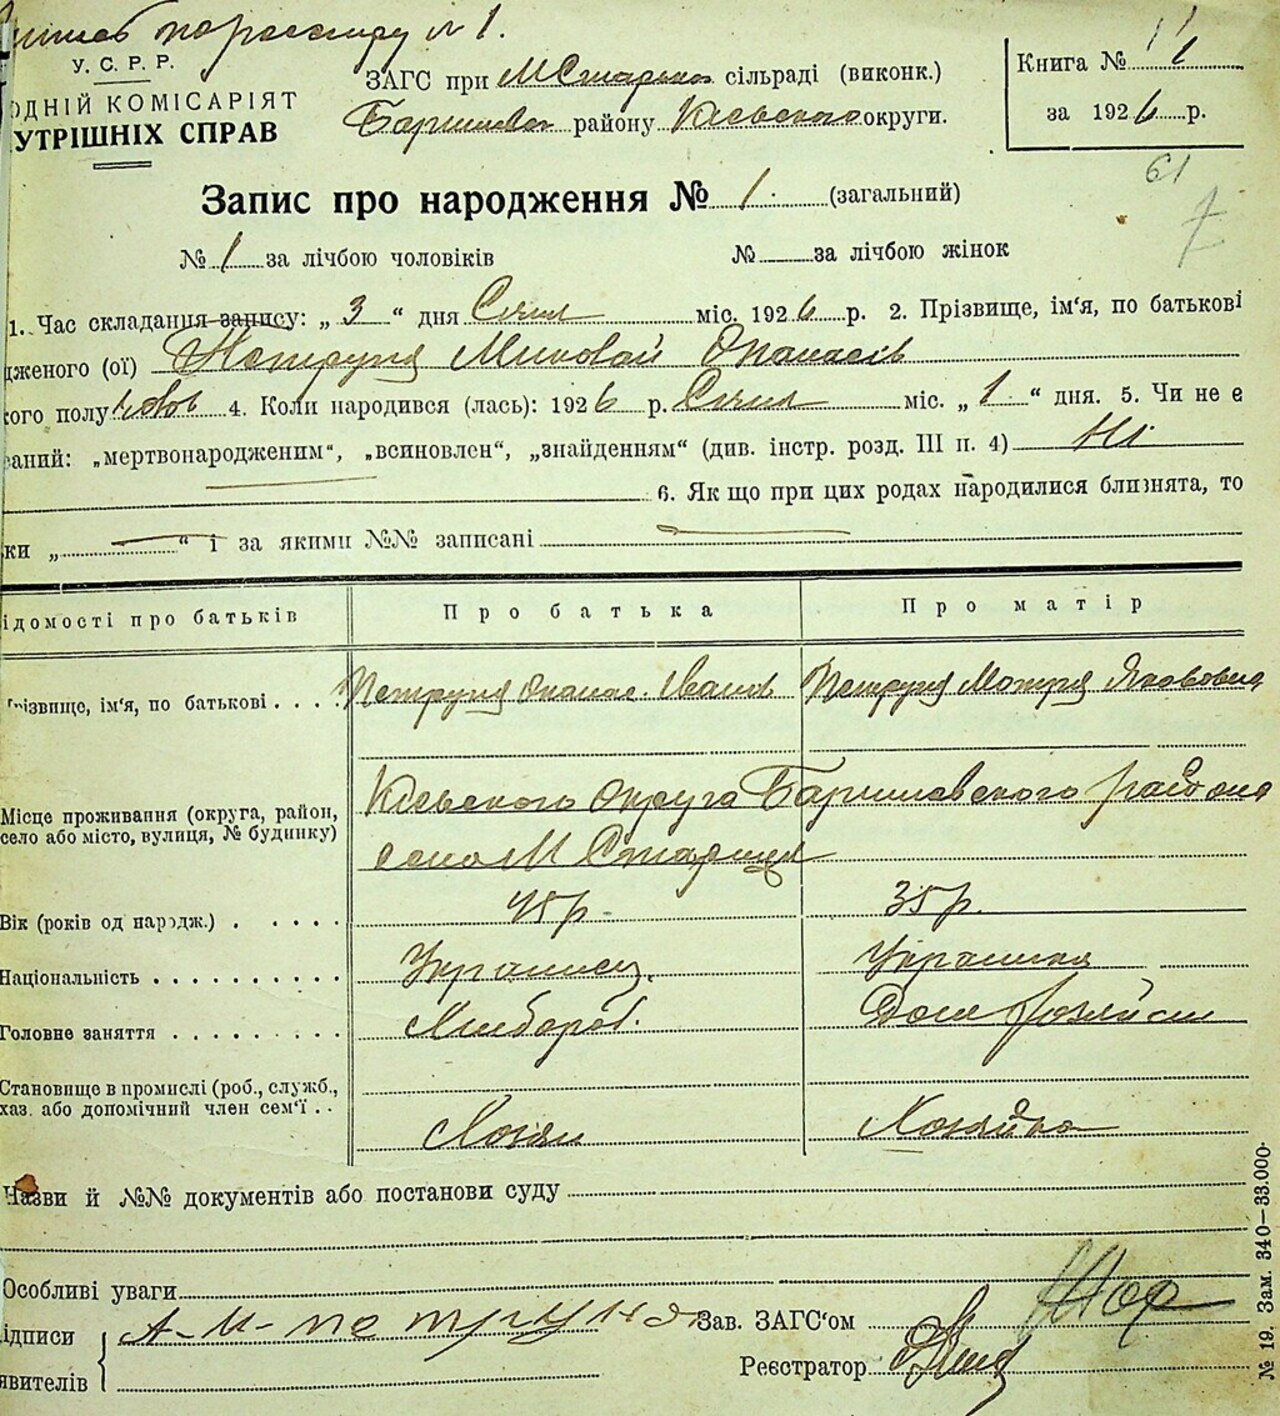 У. С. Р. Р.
ОДНІЙ КОМІСАРІЯТ
УТРІШНІХ СПРАВ
ЗАГС при М Старицк сільраді (виконк.)
Баришівск району Київського округи.
Книга № 1
за 1926 р.
61
Запис про народження № 1. (загальний)
№ 1 за лічбою чоловіків № за лічбою жінок
1. Час складання запису: „ 3 “ дня Січня міс. 1926 р. 2. Прізвище, ім‘я, по батькові
дженого (ої) Петруня Миколай Опанасів
кого полу чолов 4. Коли народився (лась): 1926 р. Січня міс. „ 1 “ дня. 5. Чи не є
заний: „мертвонародженим“, „всиновлен“, „знайденням“ (див. інстр. розд. III п. 4) Ні
6. Як що при цих родах народилися близнята, то
ки „ “ і за якими №№ записані
ідомості про батьків Про батька Про матір
різвище, ім‘я, по батькові . . . . Петруня Опанас Іванов Петруня Мотря Якововна
Місце проживання (округа, район, село або місто, вулиця, № будинку) Київського Округа Баришавского района
село М Старица
Вік (років од народж.) . . . . . 45 р 35 р.
Національність . . . . . . . . . . Украинец. Украинка
Головне заняття . . . . . . . . . Хлібороб. Дом Хозяйсш
Становище в промислі (роб., служб.,
хаз. або допомічний член сем‘ї . . Хозяин Хозяйка
Назви й №№ документів або постанови суду
Особливі уваги
ідписи А-И-петруня Зав. ЗАГС‘ом
явителів Реєстратор
№ 19. Зам. 340—33.000.